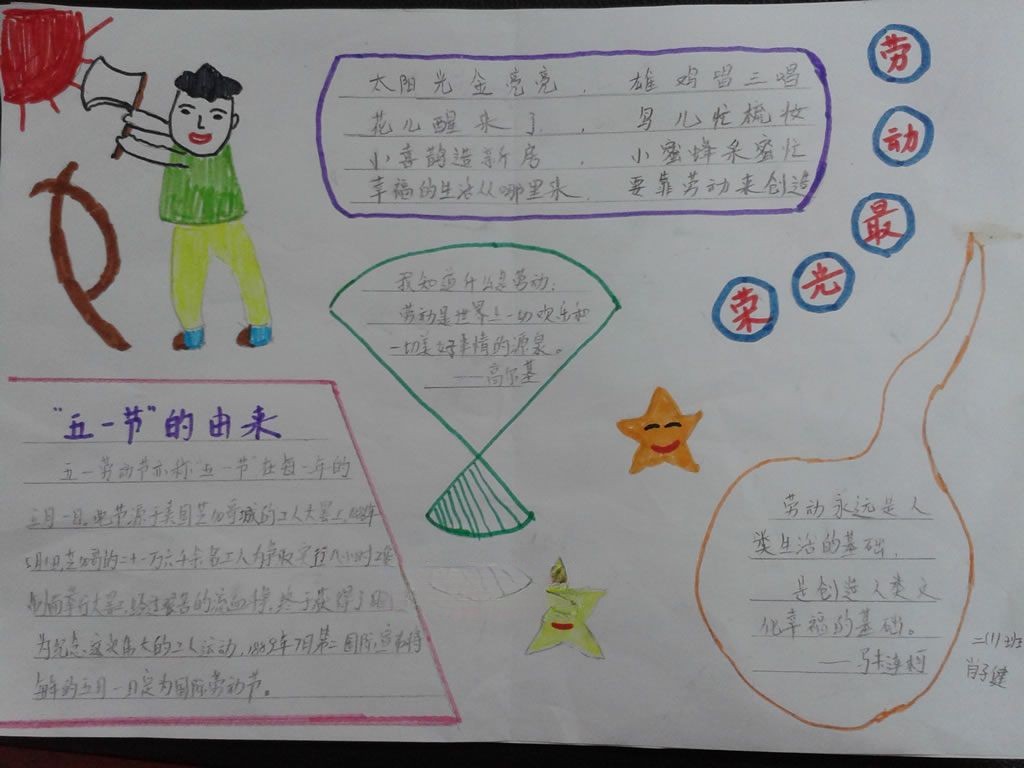 劳
动
最
光
荣
太阳光金亮亮，雄鸡唱三唱
花儿醒来了，鸟儿忙梳妆
小喜鹊造新房，小蜜蜂采蜜忙
幸福的生活从哪里来，要靠劳动来创造
我知道什么是劳动：
劳动是世界上一切欢乐和
一切美好事情的源泉。
——高尔基
"五一节"的由来
五一劳动节亦称"五一节"在每一年的
五月一日。此节源于美国芝加哥城的工人大罢工，1886年
5月1日，芝加哥的二十一万六千余名工人为争取实行八小时工作
制而举行大罢工，经过艰苦的流血，终于获得了
为纪念这次伟大的工人运动，1889年7月第二国际宣布将
每年的五月一日定为国际劳动节。
劳动永远是人
类生活的基础，
是创造人类文
化幸福的基础。
——马卡连柯
二(1)班
肖子健